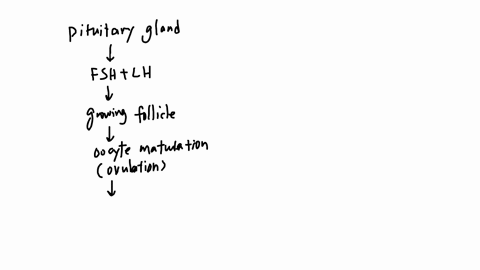 pituitary gland
↓
FSH+LH
↓
growing follicle
↓
oocyte matulation
(ovulation)
↓